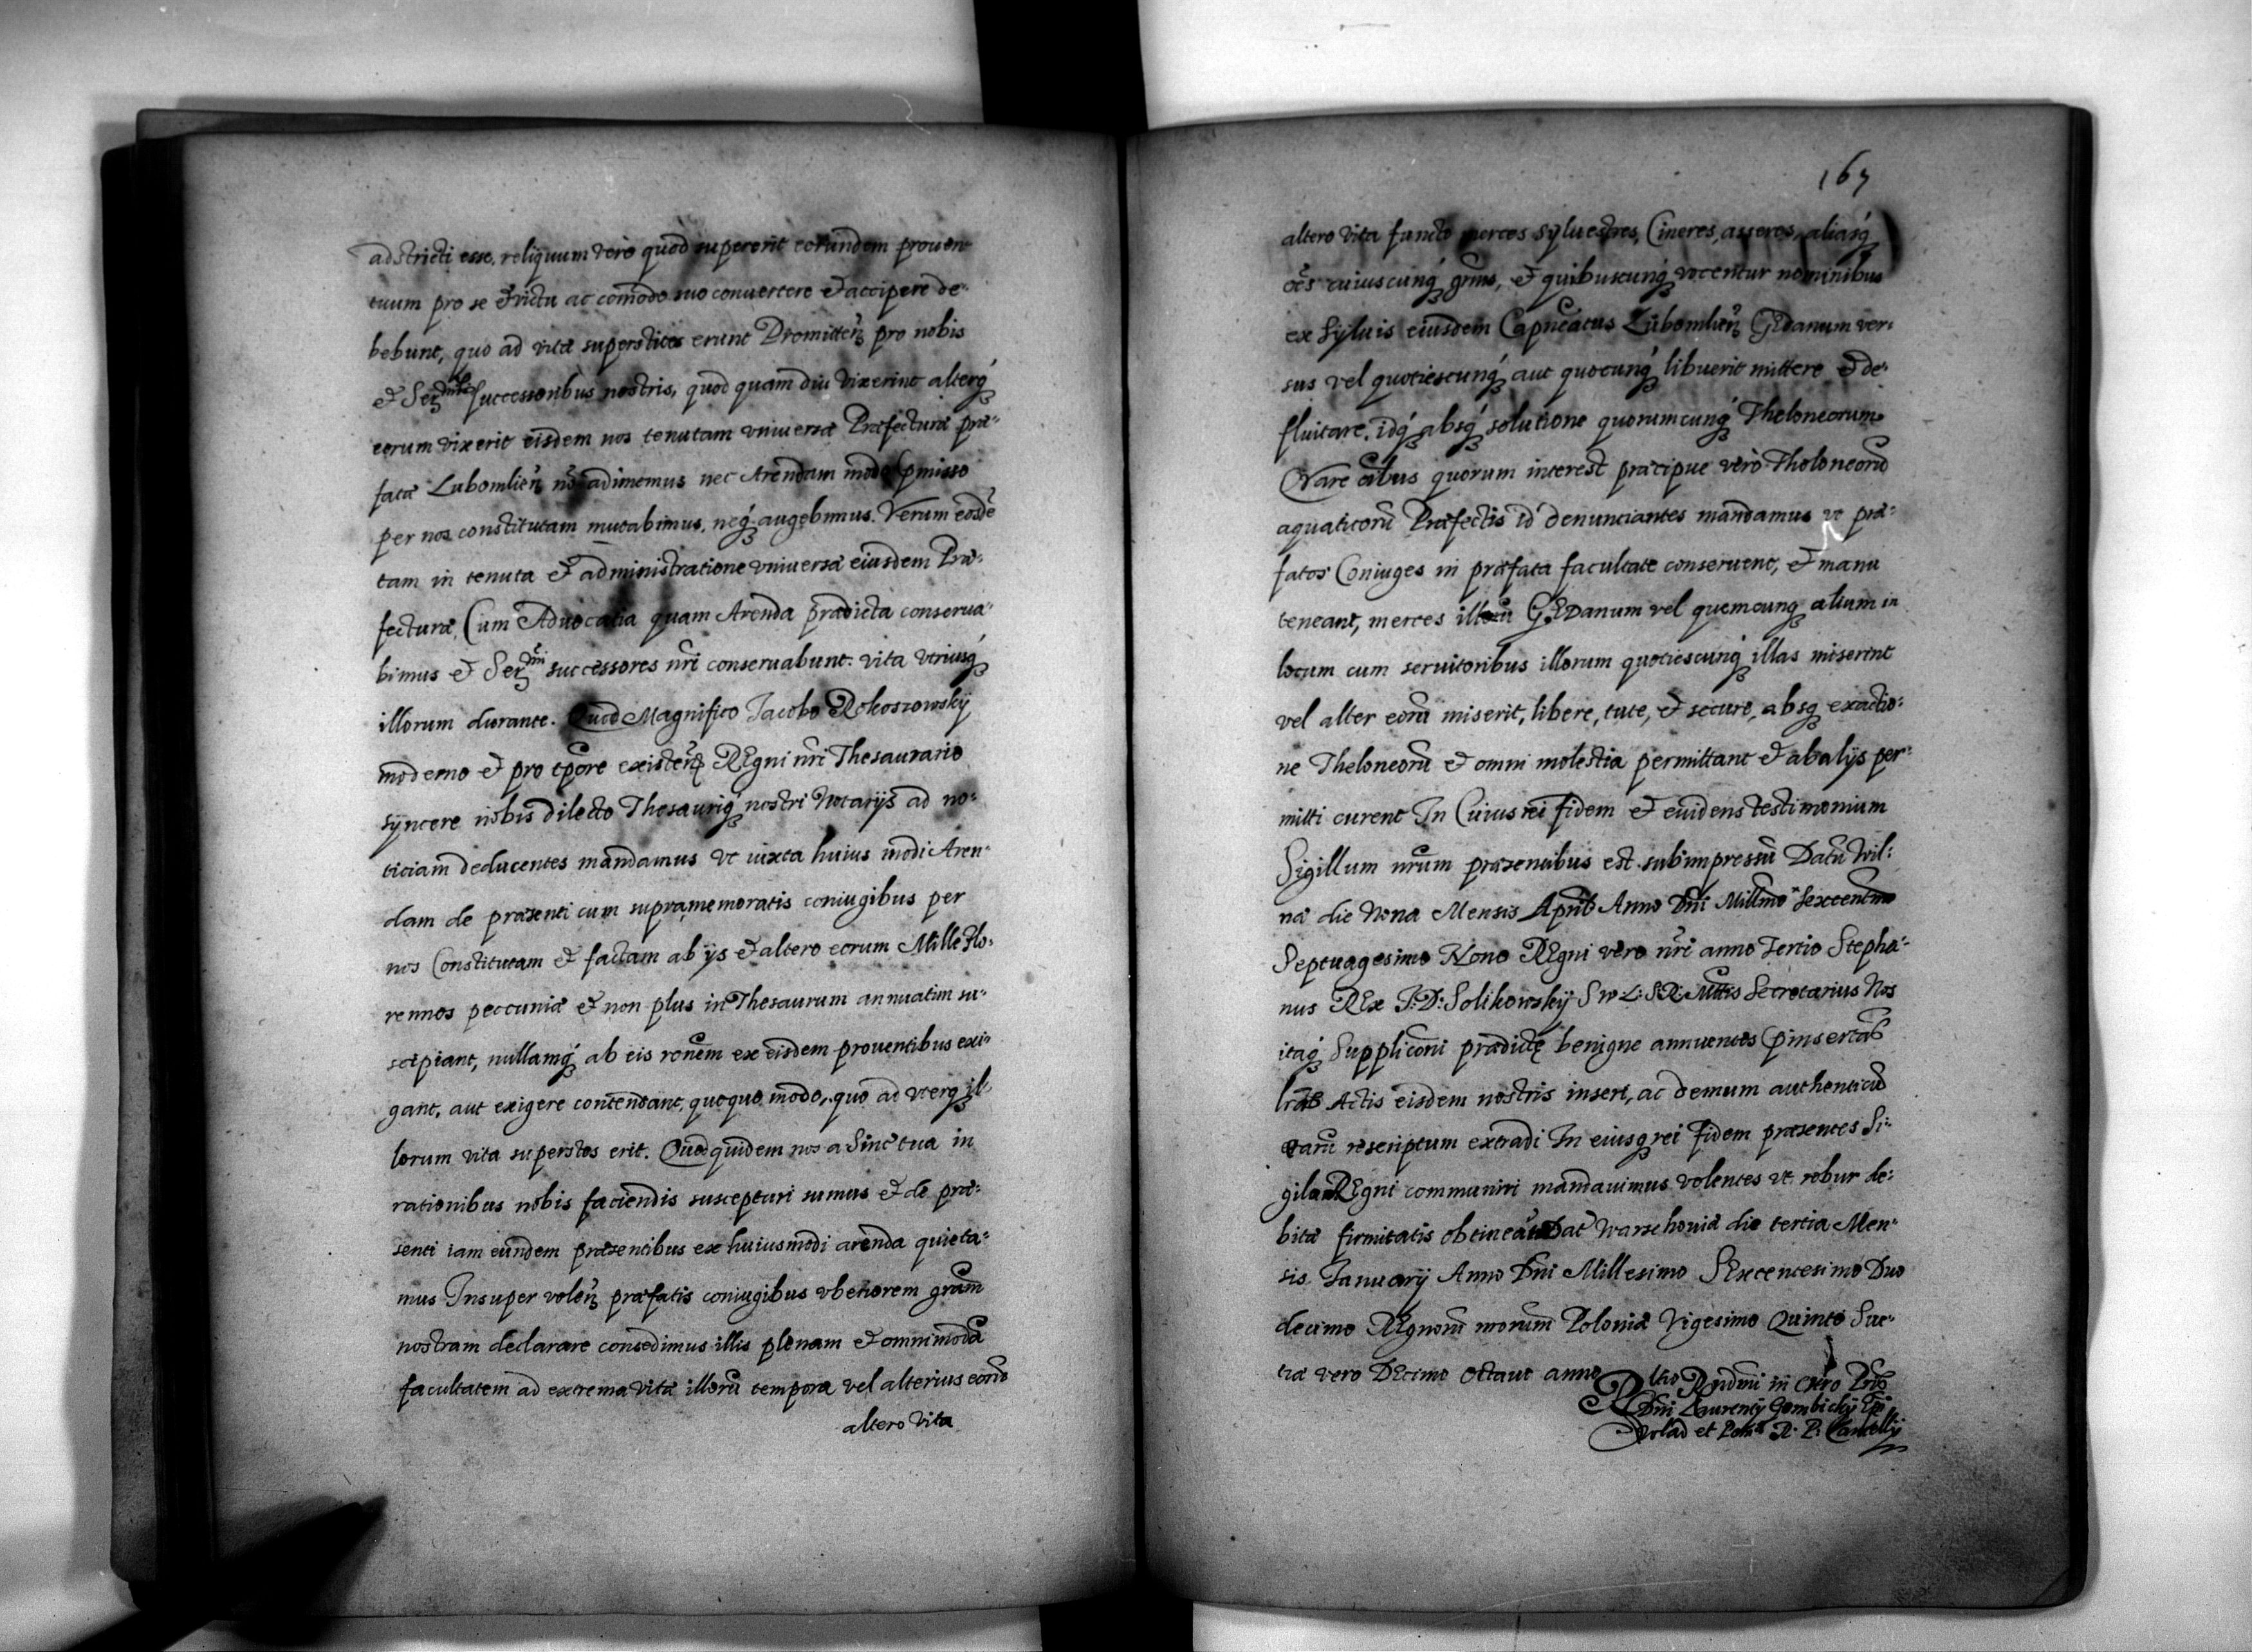 adstricti esse, reliquum vero quod supererit eorundem prouen-
tuum pro se et victu ac comodo suo conuertere et accipere de-
bebunt, quo ad vitæ superstites erunt Promitteñ pro nobis
et Ser successoribus nostris, quod quam diu vixerint alterq́
eorum vixerit eisdem nos tenutam vniuersæ Præfecturæ præ-
fatæ Lubomlieñ nõ adimemus nec Arendam modo pmisso
per nos constitutam mutabimus, neq́ augebimus. Verum eosdẽ
tam in tenuta et administratione vniuersæ eiusdem Præ-
fecturæ, Cum Aduocatia quam Arenda prædicta conserua-
bimus et Ser successores nrĩ conseruabunt. vita vtriusq́
illorum durante. Quod Magnifico Iacobo Rokoszowskÿ
moderno et pro tpõre existeñ REgni nrĩ Thesaurario
sÿncere nobis dilecto Thesauriq́ nostri Notarÿs ad no-
ticiam deducentes mandamus vt iuxta huius modi Aren-
dam de præsenti cum supramemoratis coniugibus per
nos Constitutam et factam ab ÿs et altero eorum Mille Flo-
rennos peccuniæ et non plus in Thesaurum annuatim su-
scipiant, nullamq́ ab eis ronẽm ex eisdem prouentibus exi-
gant, aut exigere contendant, quoquo modo, quo ad vterq il-
lorum vita superstes erit. Quod quidem nos a Sinc tua in
rationibus nobis faciendis suscepturi sumus et de præ-
senti iam eundem præsentibus ex huiusmodi arenda quieta-
mus Insuper voleñ præfatis coniugibus vberiorem grãm
nostram declarare consedimus illis plenam et omnimodã
facultatem ad extrema vitæ illorũ tempora vel alterius eorũ
altero vita
167
altero vita functo merces Syluestres, Cineres, asseres, aliasq́
oẽs cuiuscunq́ gñris, et quibuscunq́ vocentur nominibus
ex Syluis eiusdem Capneatus Lubomlieñ GEdanum ver-
sus vel quotiescunq́ aut quocunq́ libuerit mittere et de-
fluitare, idq́ absq́ solutione quorumcunq́ Theloneorum
Quare oĩbus quorum interest præcipue vero Theloneorũ
aquaticorũ Præfectis id denunciantes mandamus vt præ-
fatos Coniuges in præfata facultate conseruent, et manu
teneant, merces illorũ GEdanum vel quemcunq alium in
locum cum seruitoribus illorum quotiescunq́ illas miserint
vel alter eorũ miserit, libere, tute, et secure, absq exactio-
ne Theloneorũ et omni molestia permittant et ab alÿs per-
mitti curent In Cuius rei fidem et euidens testimonium
Sigillum nrũm præsentibus est subimpressũ Datũ Wil-
næ die Nona Mensis Aprilis Anno Dni Millmo Sexcentmo
Septuagesimo Nono REgni vero nrĩ anno Tertio Stepha-
nus REx I: D: Solikowskÿ S w L: S R: Mttis Secretarius Nos
itaq́ Suppliconi prædictę benigne annuentes pinsertas
lrãs Actis eisdem nostris inseri, ac demum authenticũ
earũ rescriptum extradi In eiusq rei fidem præsentes Si-
gilam REgni communiri mandauimus volentes vt robur de-
bitæ firmitatis obtineãt Dat Warschouiæ die tertia Men-
sis Januarÿ Anno Dni Millesimo SExcentesimo Duo
decimo REgnorũ nrorum Poloniæ Vigesimo Quinto Sue-
tiæ vero DEcimo Octauo anno
Rltio Rndmi in Chro Pris
Dni Laurentÿ Gembickÿ Epi
Wlad et Pom R. P. Cancellÿ